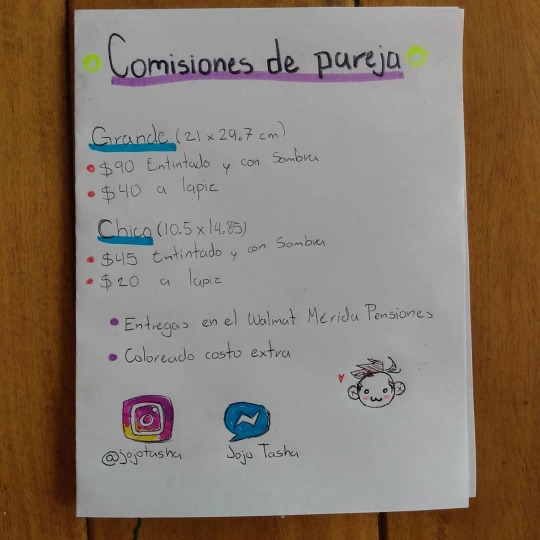 Comisiones de pareja
Grande (21 x 29.7 cm)
$90 Entintado y con Sombra
$40 a lapiz
Chico (10.5 x 14.85)
$45 Entintado y con Sombra
$20 a lapiz
Entregas en el Walmat Merida Pensiones
Coloreado costo extra
@jojotasha
Jojo Tasha